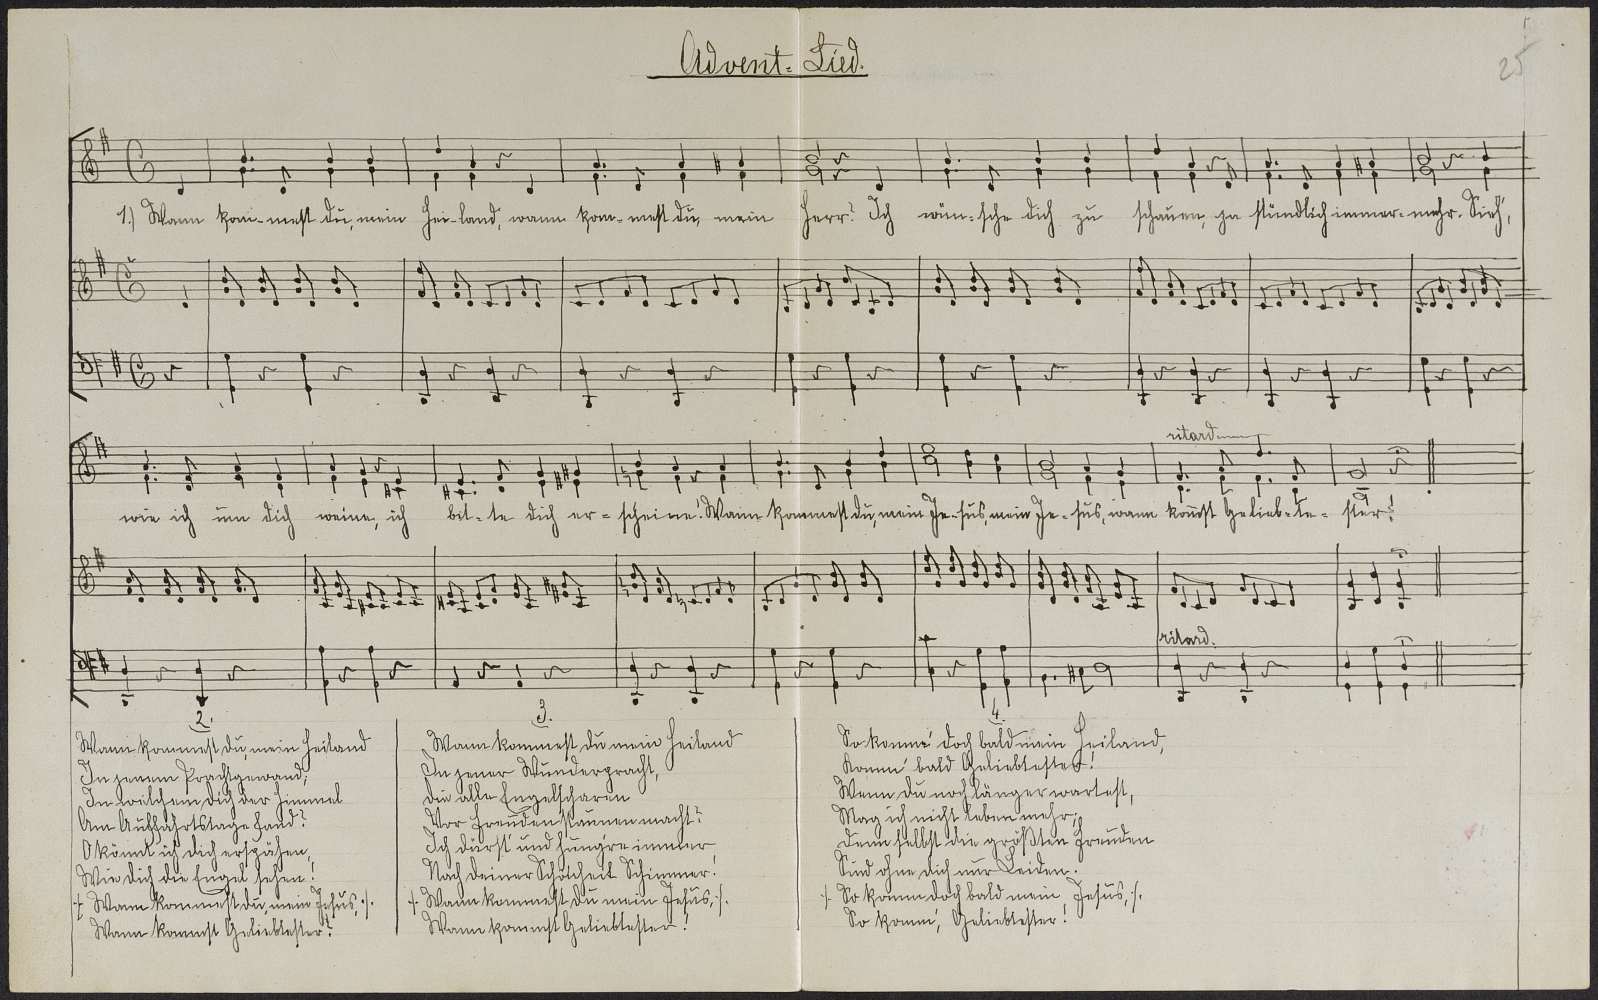 Advent-Lied.
25
1.) Wann kom-mest du, mein Hei-land, wann kom-mest du, mein Herr? Ich wün-sche dich zu schauen, ja stündlich immer-mehr. Sieh',
ritard
wie ich um dich weine, ich bit-te dich er-scheine! Wann kommest du, mein Je-sus, mein Je-sus, wann kommst Gelieb-te-ster?
ritard.
2.
Wann kommest du, mein Heiland
In jenem Prachtgewand,
In welchem dich der Himmel
Am Auffahrtstage fand?
O könnt' ich dich erspähen,
Wie dich die Engel sehen!
:/: Wann kommest du, mein Jesus, :/:
Wann kommst Geliebtester?
3.
Wann kommest du mein Heiland
In jener Wunderpracht,
Die alle Engelscharen
Vor Freuden staunen macht?
Ich dürst' und hung're immer
Nach deiner Schönheit Schimmer!
:/: Wann kommest du mein Jesus, :/:
Wann kommst Geliebtester!
4.
So komm' doch bald mein Heiland,
Komm' bald Geliebtester!
Wenn du noch länger wartest,
Mag ich nicht leben mehr;
Denn selbst die größten Freuden
Sind ohne dich nur Leiden.
:/: So komm doch bald mein Jesus, :/:
So komm', Geliebtester!